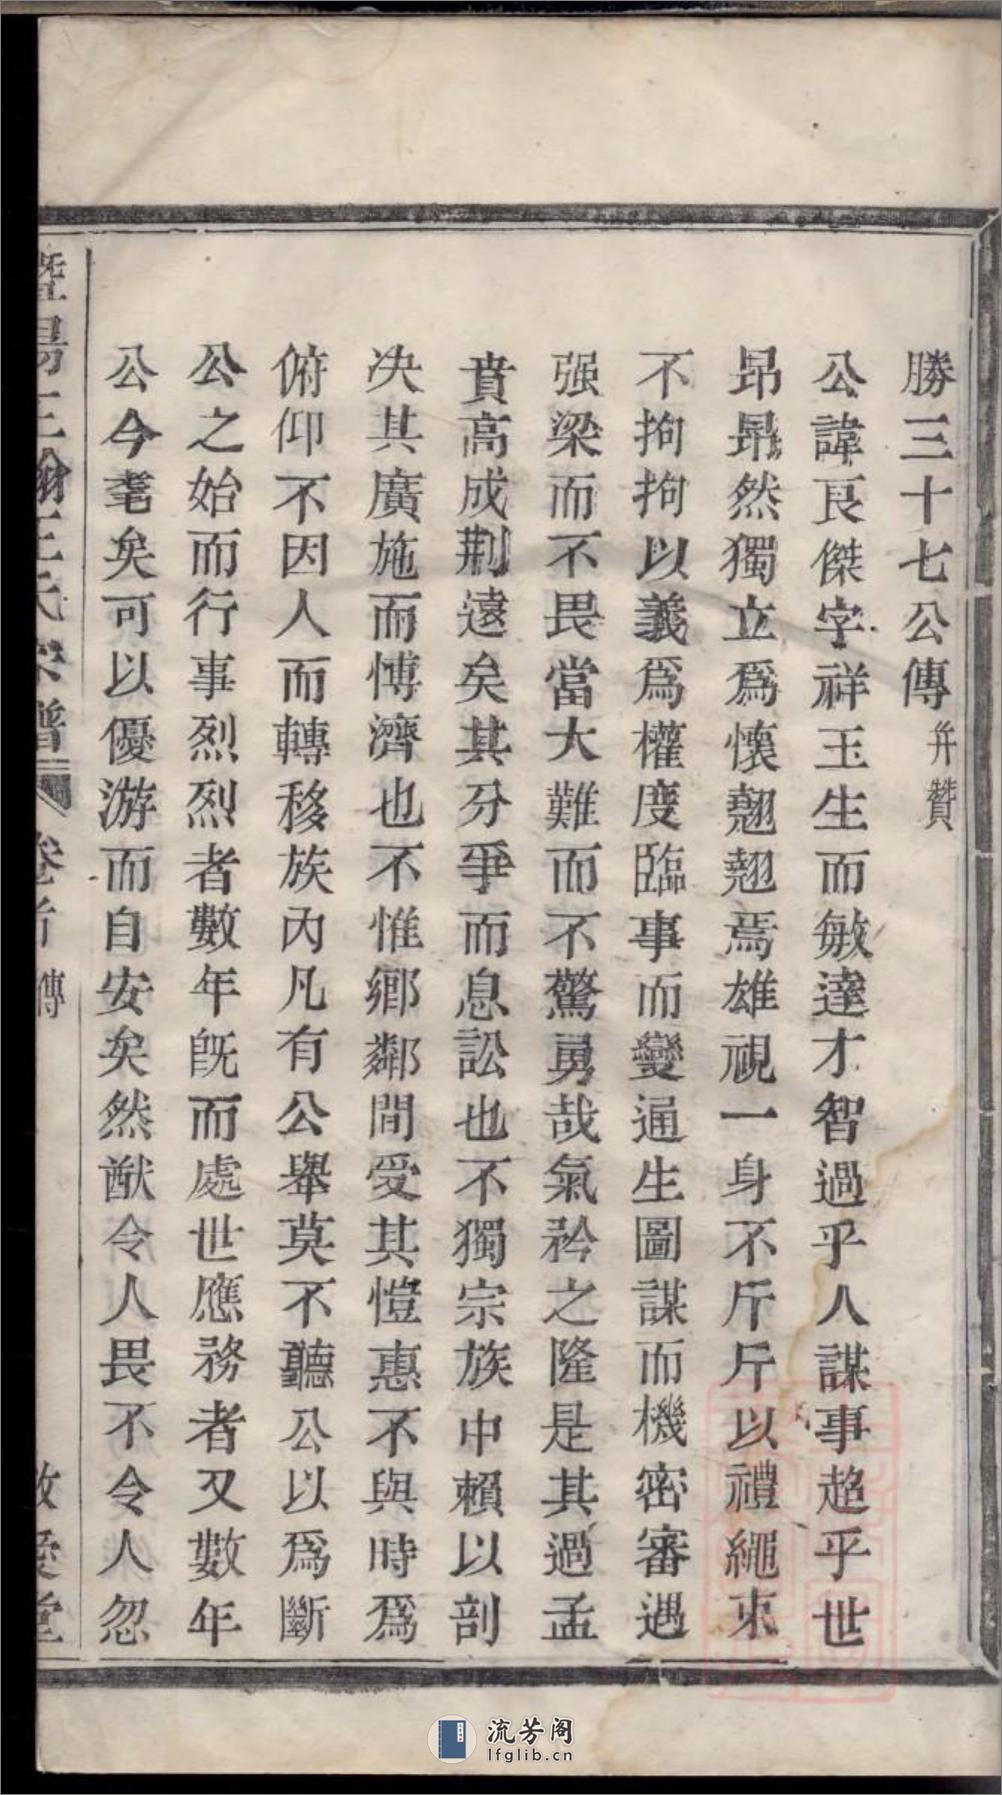 勝三十七公傳 幷贊
公諱良傑字祥玉生而敏達才智過乎人謀事趨乎世
昂昂然獨立爲懷翹翹焉雄視一身不斤斤以禮繩束
不拘拘以義爲權度臨事而變通生圖謀而機密審遇
强梁而不畏當大難而不驚勇哉氣矜之隆是其過孟
賁高成荆遠矣其分爭而息訟也不獨宗族中賴以剖
决其廣施而愽濟也不惟鄉鄰間受其愷惠不與時爲
俯仰不因人而轉移族內凡有公舉莫不聽公以爲斷
公之始而行事烈烈者數年旣而處世應務者又數年
公今耄矣可以優游而自安矣然猷令人畏不令人忽
曁陽 王氏宗譜 卷首 傳 敬愛堂
流芳阁
lfglib.cn